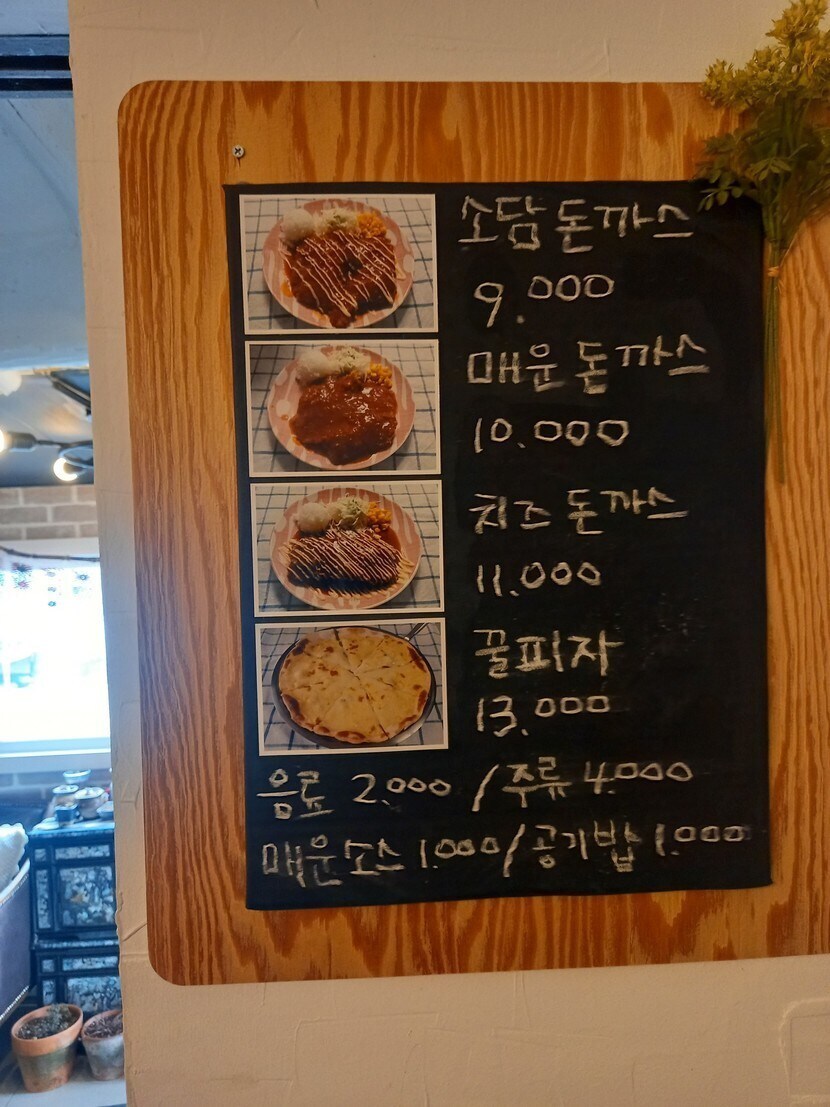 소담돈까스
9.000
매운돈까스
10.000
치즈돈까스
11.000
꿀피자
13.000
음료 2.000 / 주류 4.000
매운소스 1.000 / 공기밥 1.000